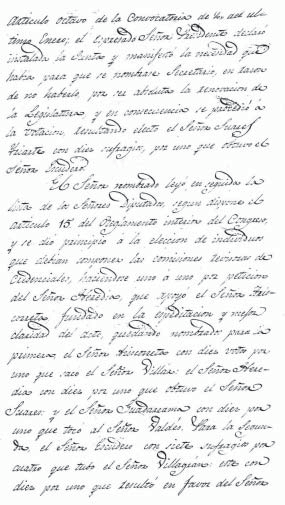 Artículo octavo de la Convocatoria de 4 del ul-
timo Enero; el Expresado Señor Presidente declaró
instalada la Junta y manifestó la necesidad que
había para que se nombrase Secretario, en razon
de no haberlo por ser absoluta la renovacion de
la Legislatura y en consecuencia se procedió á
la votacion, resultando electo el Señor Suarez
Iriarte con diez sufragios, por uno que obtuvo el
Señor Escudero.
El Señor nombrado leyó en seguida la
lista de los Señores Diputados, segun dispone el
artículo 15 del Reglamento interior del Congreso,
y se dió principio á la eleccion de individuos
que debian componer las comisiones revisoras de
Credenciales, haciendose uno á uno por peticion
del Señor Heredia, que apoyó el Señor
fundado en la espeditacion y mejor
claridad del acto, quedando nombrados para la
primera el Señor con diez votos por
uno que sacó el Señor Villa: el Señor Here-
dia con diez por uno que obtuvo el Señor
Suarez: y el Señor Guadarrama con diez por
uno que tocó al Señor Valdés. Para la Segun-
da, el Señor Escudero con siete sufragios por
cuatro que tubo el Señor Villagran: este con
diez por uno que resultó en favor del Señor